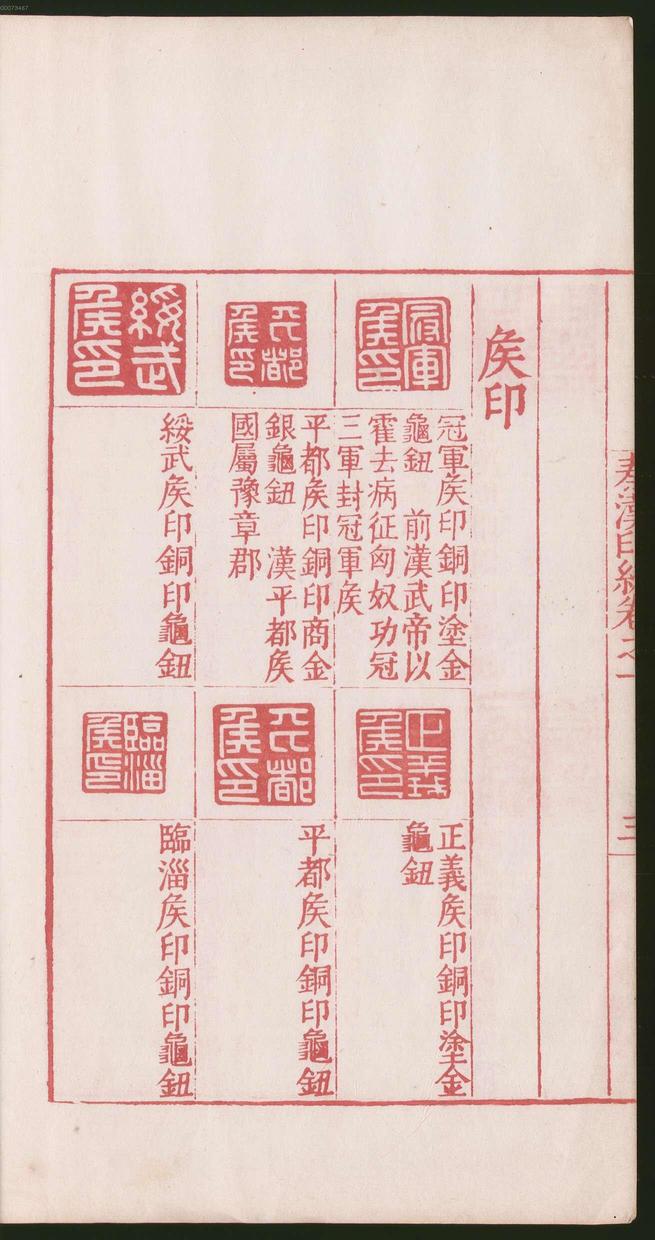 00073467
秦漢印統卷之一
三
矦印
冠軍
矦印
冠軍矦印銅印塗金
龜鈕　前漢武帝以
霍去病征匈奴功冠
三軍封冠軍矦
正義
矦印
正義矦印銅印塗金
龜鈕
平都
矦印
平都矦印銅印商金
銀龜鈕　漢平都矦
國屬豫章郡
平都
矦印
平都矦印銅印龜鈕
綏武
矦印
綏武矦印銅印龜鈕
臨淄
矦印
臨淄矦印銅印龜鈕